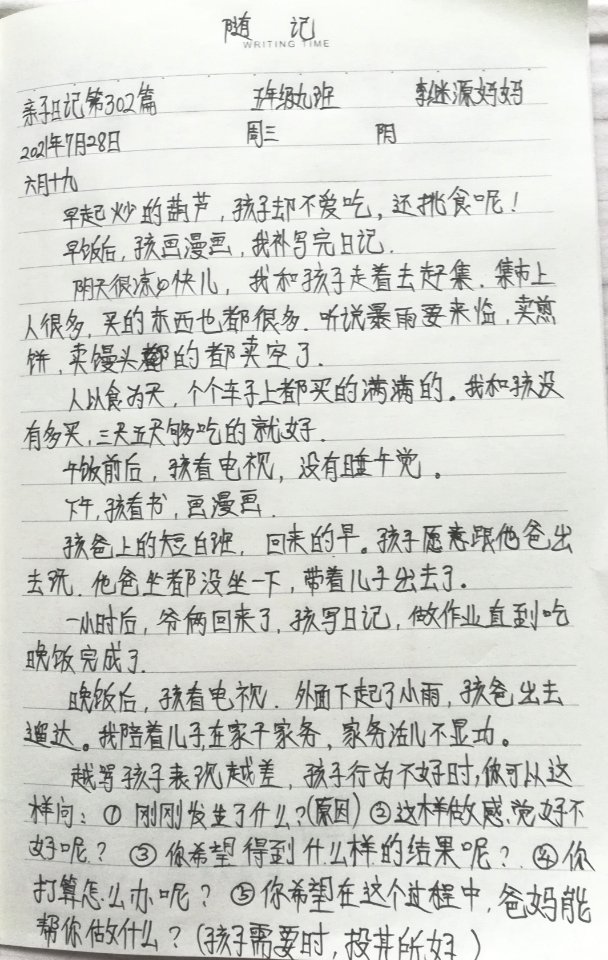 随 记
WRITING TIME
亲子日记第302篇 五年级九班 李继源妈妈
2021年7月28日 周三 阴
六月十九
早起炒的葫芦，孩子却不爱吃，还挑食呢！
早饭后，孩画漫画，我补写完日记.
阴天很凉快儿，我和孩子走着去赶集.集市上
人很多，买的东西也都很多.听说暴雨要来临，卖煎
饼，卖馒头的都卖空了.
人以食为天，个个车子上都买的满满的。我和孩没
有多买，三天五天够吃的就好.
午饭前后，孩看电视，没有睡午觉。
下午，孩看书，画漫画.
孩爸上的短白班，回来的早。孩子愿意跟他爸出
去玩.他爸坐都没坐一下，带着儿子出去了。
一小时后，爷俩回来了，孩写日记，做作业直到吃
晚饭完成了.
晚饭后，孩看电视.外面下起了小雨，孩爸出去
遛达。我陪着儿子在家干家务，家务活儿不显功。
越骂孩子表现越差，孩子行为不好时，你可以这
样问：①刚刚发生了什么？(原因)②这样做感觉好不
好呢？③你希望得到什么样的结果呢？.④你
打算怎么办呢？⑤你希望在这个过程中，爸妈能
帮你做什么？(孩子需要时，投其所好)